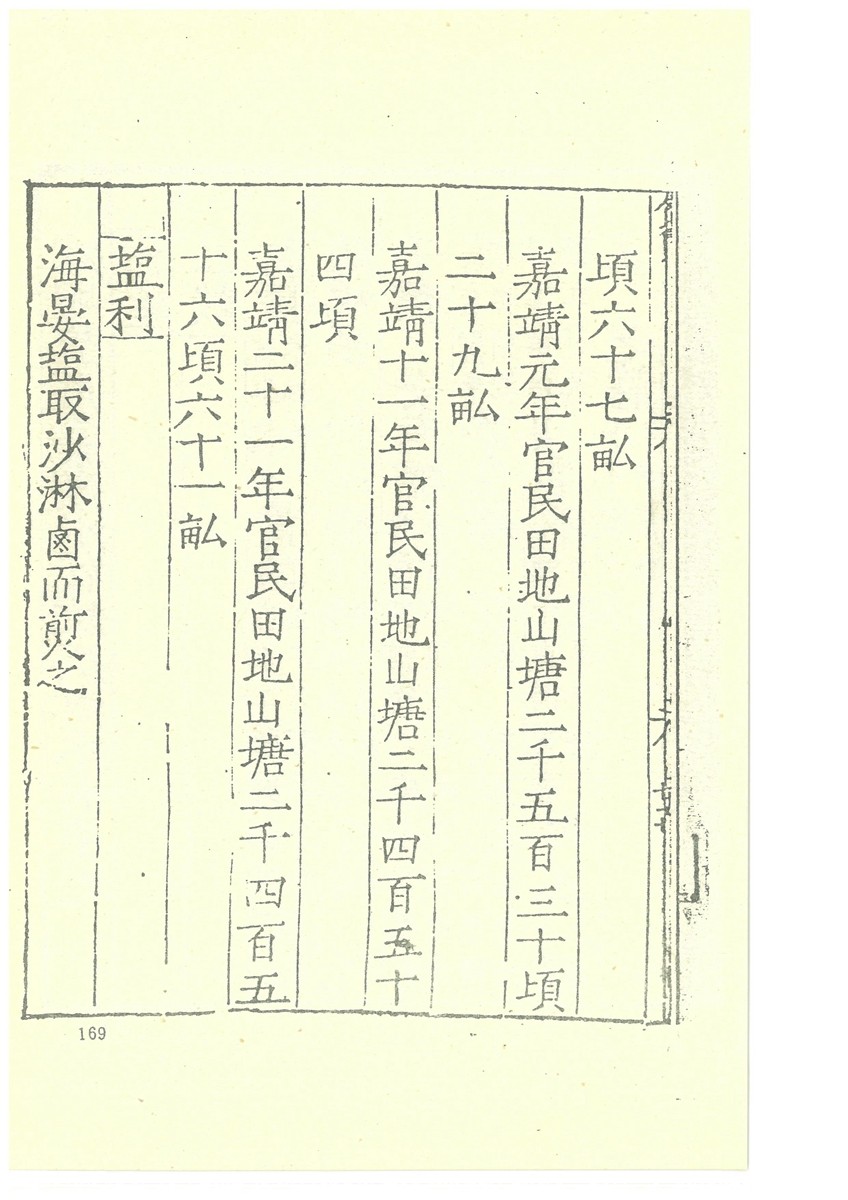 頃六十七畝
嘉靖元年官民田地山塘二千五百三十頃
二十九畝
嘉靖十一年官民田地山塘二千四百五十
四頃
嘉靖二十一年官民田地山塘二千四百五
十六頃六十一畝
塩利
海晏塩取沙淋鹵而煎之
169